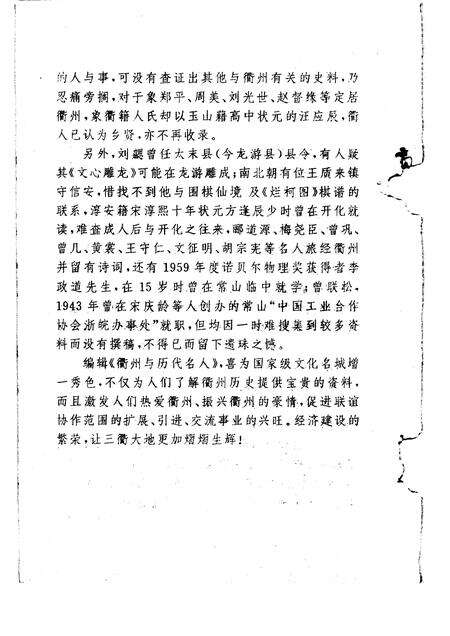 的人与事，可没有查证出其他与衢州有关的史料，乃
忍痛旁搁，对于象郑平、周美、刘光世、赵督缘等定居
衢州，象衢籍人氏却以玉山籍高中状元的汪应辰，衢
人已认为乡贤，亦不再收录。
另外，刘勰曾任太末县（今龙游县）县令，有人疑
其《文心雕龙》可能在龙游雕成；南北朝有位王质来镇
守信安，惜找不到他与围棋仙境及《烂柯图》棋谱的
联系，淳安籍宋淳熙十年状元方逢辰少时曾在开化就
读，难查成人后与开化之往来，郦道源、梅尧臣、曾巩、
曾几、黄裳、王守仁、文征明、胡宗宪等名人旅经衢州
并留有诗词，还有1959年度诺贝尔物理奖获得者李
政道先生，在15岁时曾在常山临中就学；曾联松，
1943年曾在宋庆龄等人创办的常山“中国工业合作
协会浙皖办事处”就职，但均因一时难搜集到较多资
料而没有撰稿，不得已而留下遗珠之憾。
编辑《衢州与历代名人》，喜为国家级文化名城增
一秀色，不仅为人们了解衢州历史提供宝贵的资料，
而且激发人们热爱衢州、振兴衢州的豪情，促进联谊
协作范围的扩展、引进、交流事业的兴旺。经济建设的
繁荣，让三衢大地更加熠熠生辉！